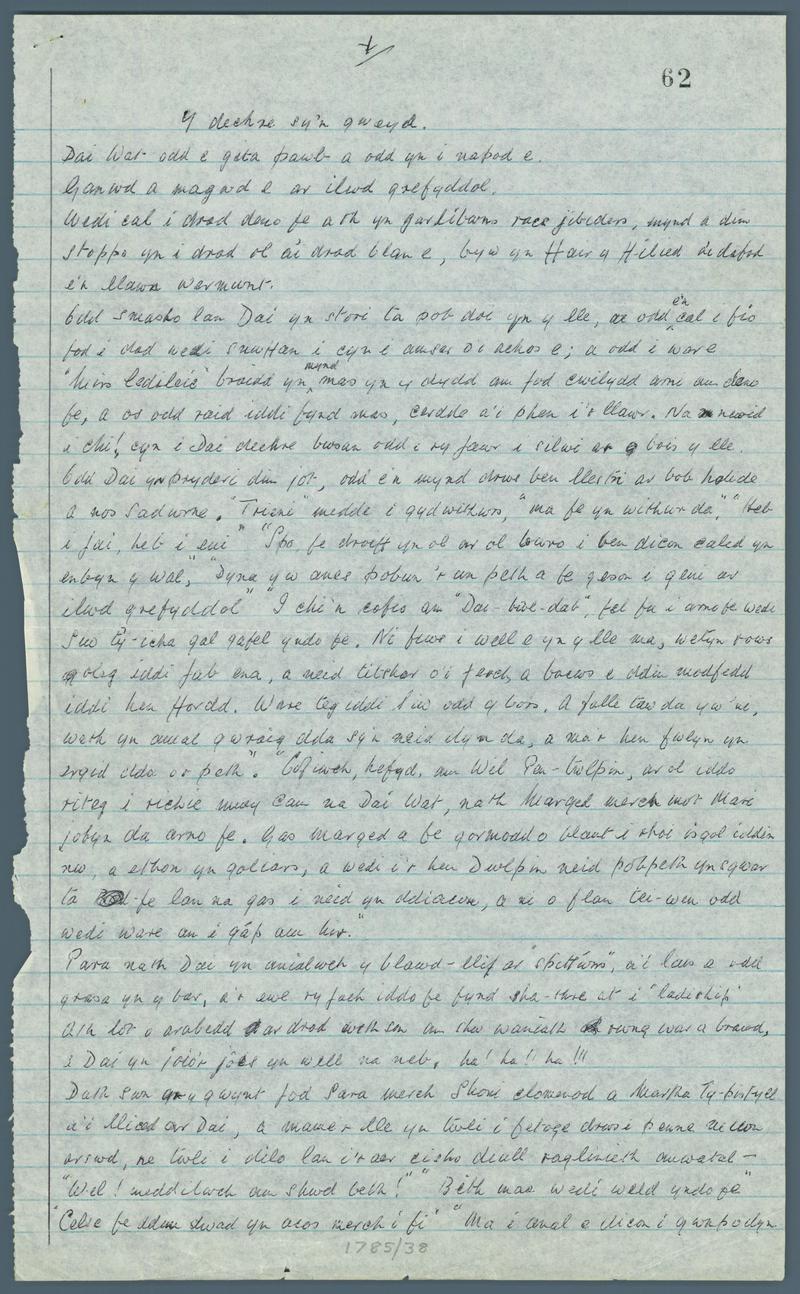 62
Y dechre sy'n gweyd.
Dai Wat odd e gita pawb a odd yn i napod e.
Ganwd a magwd e ar ilwd grefyddol.
Wedi cal i drad deno fe ath yn garlibwns race jibiders, mynd a dim
stoppo yn i drad ol a'i drad blan e, byw yn Hair y Hiled a'i dafod
e'n llawn wermunt.
Odd smasho lan Dai yn stori ta pob doi yn y lle, ac odd e'n cal i fio
fod i dad wedi suwttan i cyn i amsar o'i achos e; a odd i ware
braidd yn mynd mas yn y dydd am fod cwilydd arni am deno
fe, a os odd raid iddi fynd mas, cerdde a'i phen i'r llawr. Na newid
i chi!, cyn i Dai dechre bwsan odd i ry fawr i silwi ar bois y lle.
Odd Dai yn pryderi dim jot, odd e'n mynd drws ben llestri ar bob holide
a nos Sadwrne. "Trieni" medde i gydwithwrs, "ma fe yn withwr da", "Heb
i fai, heb i eni" "Spo fe drooff yn ol ar ol bwro i ben dicon caled yn
erbyn y wal," "Dyna yw anes pobun 'r un peth a fe geson i geni ar
ilwd grefyddol" "I chi'n cofio am "Dai-bwe-dab", fel fu i arno fe wedi
i'w gal gafel yndo fe. Ni fuwe i well e yn y lle ma, wetyn rows
goleg iddi fab ena, a neid titshar o'i ferch, a baews e ddim modfedd
iddi hen ffordd. Ware teg iddi liw odd y bors. A falle taw da yw 'ne,
weth yn amal gwraig dda sy'n neid dyn da, a ma'r hen fwlyn yn
ergid iddo or peth". "Cofiwch, hefyd, am Wil Pen-twlpin, ar ol iddo
riteg i richie mwy cam na Dai Wat, nath Marged merch mot Mari
jobyn da arno fe. Gas Marged a fe gormodd o blant i rhoi isgol iddin
nw, a ethon yn goliars, a wedi i'r hen Dwlpin neid pobpeth yn sgwar
ta fe lan na gas i neid yn ddiacon, a ni o flan tei-wen odd
wedi ware am i gâp am hir."
Para nath Dai yn anialwch y blawd-llif a'r "spittŵns", a'i laes a odd
grasa yn y bar, a'r ewe ry fach iddo fe fynd sha-thre at i "ladiship"
Ath lot o arabedd ar drad weth son am shw waniath rwng war a brawd,
a Dai yn joio'r jôcs yn well na neb. ha! ha!! ha!!!
Dath swn yn y gwynt fod Sara merch Shoni clomenod a Martha Ty-pistyll
a'i lliced ar Dai, a mame'r lle yn twli i fetoge drws i penne mewn
arswd, ne twli i dilo lan i'r aer cisho diall ragliniath anwatal -
"Wel! meddilwch am shwd beth!" "Bêth mae wedi weld yndo fe"
"Celse fe ddim dwad yn acos merch i fi" "Ma i cnal e dicon i gwnpodyn
1785/38